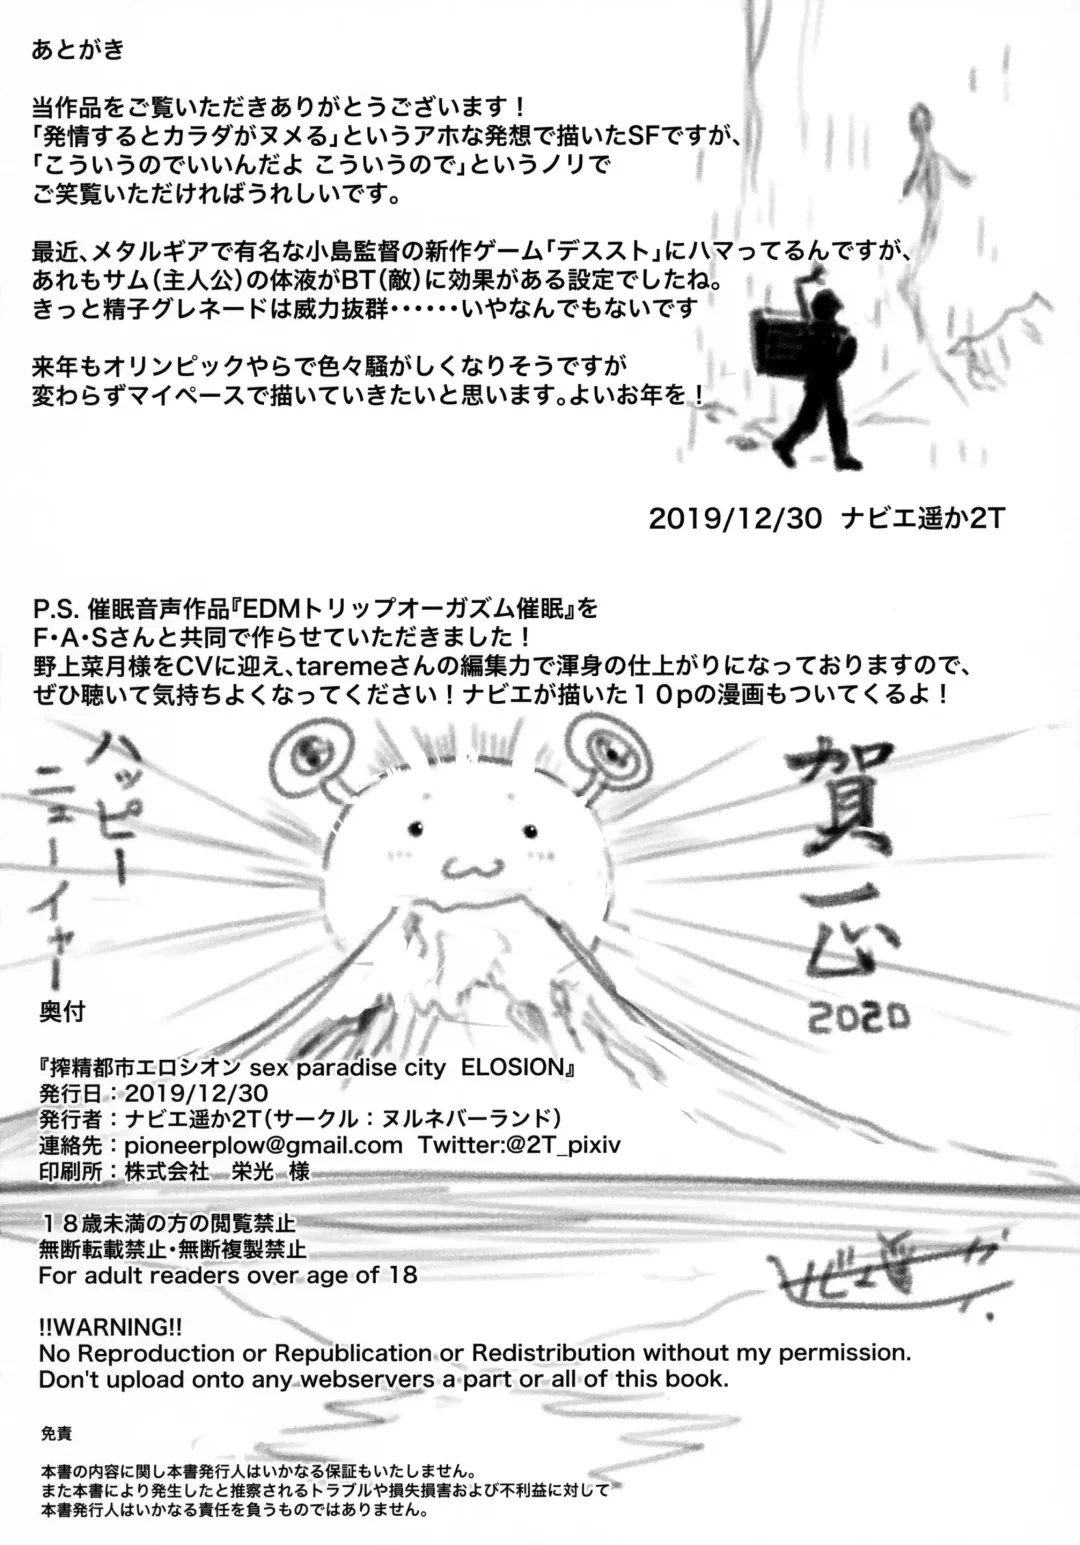 あとがき
当作品をご覧いただきありがとうございます！
「発情するとカラダがヌメる」というアホな発想で描いたSFですが、
「こういうのでいいんだよ こういうので」というノリで
ご笑覧いただければうれしいです。
最近、メタルギアで有名な小島監督の新作ゲーム「デススト」にハマってるんですが、
あれもサム（主人公）の体液がBT（敵）に効果がある設定でしたね。
きっと精子グレネードは威力抜群・・・・・・いやなんでもないです
来年もオリンピックやらで色々騒がしくなりそうですが
変わらずマイペースで描いていきたいと思います。よいお年を！
2019/12/30 ナビエ遥か2T
P.S. 催眠音声作品『EDMトリップオーガズム催眠』を
F・A・Sさんと共同で作らせていただきました！
野上菜月様をCVに迎え、taremeさんの編集力で渾身の仕上がりになっておりますので、
ぜひ聴いて気持ちよくなってください！ナビエが描いた１０pの漫画もついてくるよ！
賀正
2020
ハッピー
ニューイヤー
奥付
『搾精都市エロシオン sex paradise city ELOSION』
発行日：2019/12/30
発行者：ナビエ遥か2T（サークル：ヌルネバーランド）
連絡先：pioneerplow@gmail.com Twitter:@2T_pixiv
印刷所：株式会社 栄光 様
１８歳未満の方の閲覧禁止
無断転載禁止・無断複製禁止
For adult readers over age of 18
ナビエ遥か
!!WARNING!!
No Reproduction or Republication or Redistribution without my permission.
Don't upload onto any webservers a part or all of this book.
免責
本書の内容に関し本書発行人はいかなる保証もいたしません。
また本書により発生したと推察されるトラブルや損失損害および不利益に対して
本書発行人はいかなる責任を負うものではありません。